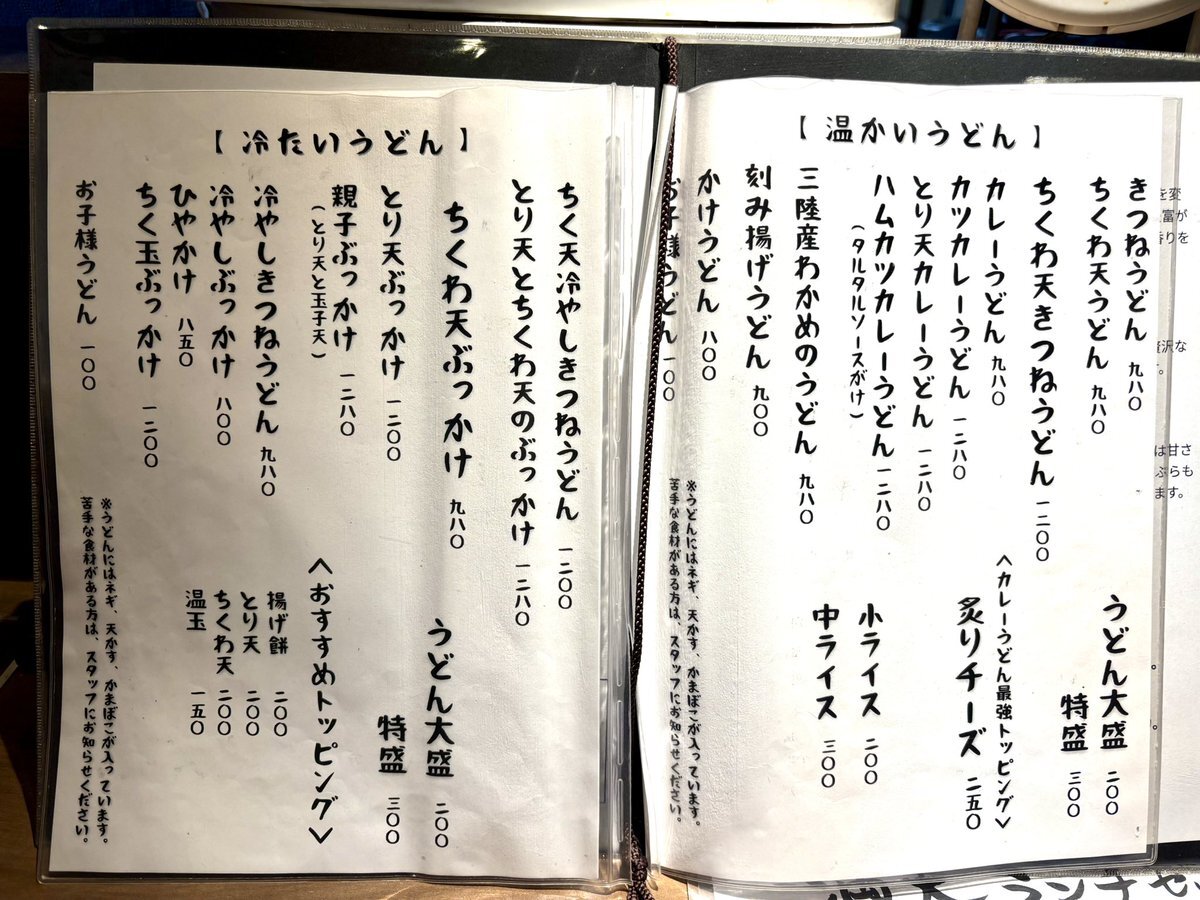 【 温かいうどん 】
きつねうどん 九八〇
ちくわ天うどん 九八〇
ちくわ天きつねうどん 一二〇〇
カレーうどん 九八〇
カツカレーうどん 一二八〇
とり天カレーうどん 一二八〇
ハムカツカレーうどん 一二八〇
（タルタルソースがけ）
三陸産わかめのうどん 九八〇
刻み揚げうどん 九〇〇
かけうどん 八〇〇
お子様うどん 一〇〇
うどん大盛 二〇〇
特盛 三〇〇
＜カレーうどん最強トッピング＞
炙りチーズ 二五〇
小ライス 二〇〇
中ライス 三〇〇
※うどんにはネギ、天かす、かまぼこが入っています。
苦手な食材がある方は、スタッフにお知らせください。
【 冷たいうどん 】
ちく天冷やしきつねうどん 一二〇〇
とり天とちくわ天のぶっかけ 一二八〇
ちくわ天ぶっかけ 九八〇
とり天ぶっかけ 一二〇〇
親子ぶっかけ 一二八〇
（とり天と玉子天）
冷やしきつねうどん 九八〇
冷やしぶっかけ 八〇〇
ひやかけ 八五〇
ちく玉ぶっかけ 一二〇〇
お子様うどん 一〇〇
うどん大盛 二〇〇
特盛 三〇〇
＜おすすめトッピング＞
揚げ餅 二〇〇
とり天 二〇〇
ちくわ天 二〇〇
温玉 一五〇
※うどんにはネギ、天かす、かまぼこが入っています。
苦手な食材がある方は、スタッフにお知らせください。
を変
富が
香りを
贅沢な
す。
は甘さ
ぷらも
ます。